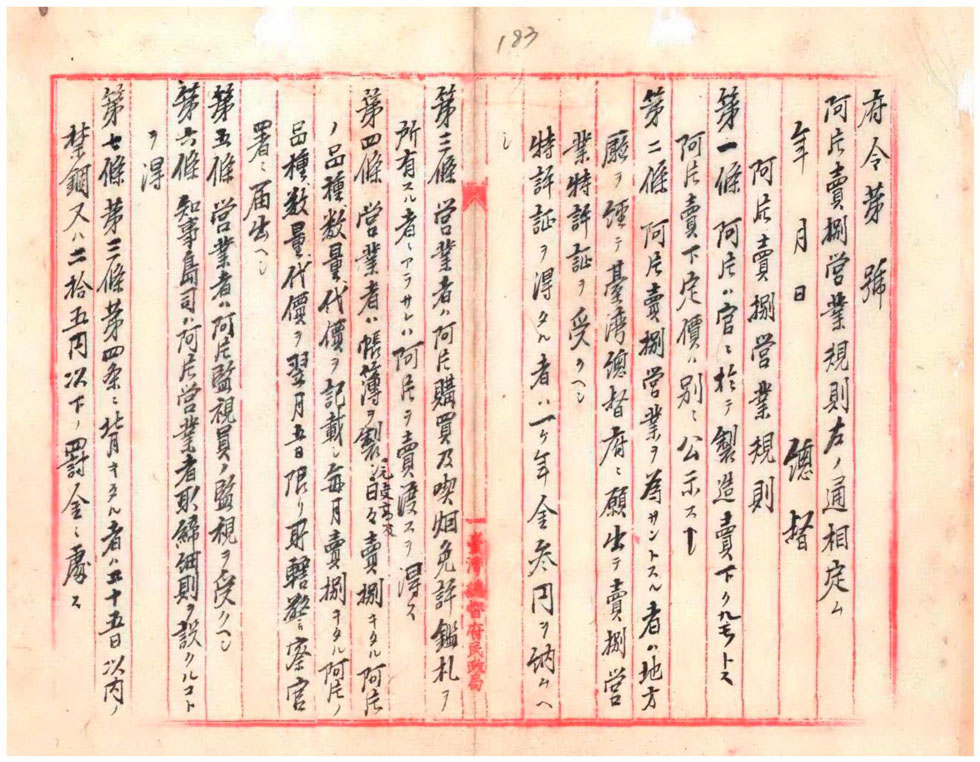 183
府令第　號
阿片賣捌営業規則左ノ通相定ム
年　月　日　總督
阿片賣捌営業規則
第一條　阿片ハ官ニ於テ製造賣下クルモノトス
阿片賣下定價ハ別ニ公示ス
第二條　阿片賣捌営業ヲ為サントスル者ハ地方
廳ヲ経テ臺湾總督府ニ願出テ賣捌営
業特許証ヲ受クヘシ
特許証ヲ得タル者ハ一ケ年金参円ヲ納ムヘ
シ
臺灣總督府民政局
第三條　営業者ハ阿片購買及喫烟免許鑑札ヲ
所有スル者ニアラサレハ阿片ヲ賣渡スヲ得ス
第四條　営業者ハ帳簿ヲ製シ日々賣捌キタル阿片
ノ品種数量代價ヲ記載シ毎月賣捌キタル阿片ノ
品種、数量、代價ヲ翌月五日限リ所轄警察官
署ニ届出ヘシ
第五條　営業者ハ阿片監視員ノ監視ヲ受クヘシ
第六條　知事島司ハ阿片営業者取締細則ヲ設クルコト
ヲ得
第七條　第三條第四条ニ背キタル者ハ二十五日以内ノ
禁錮又ハ二拾五円以下ノ罰金ニ處ス